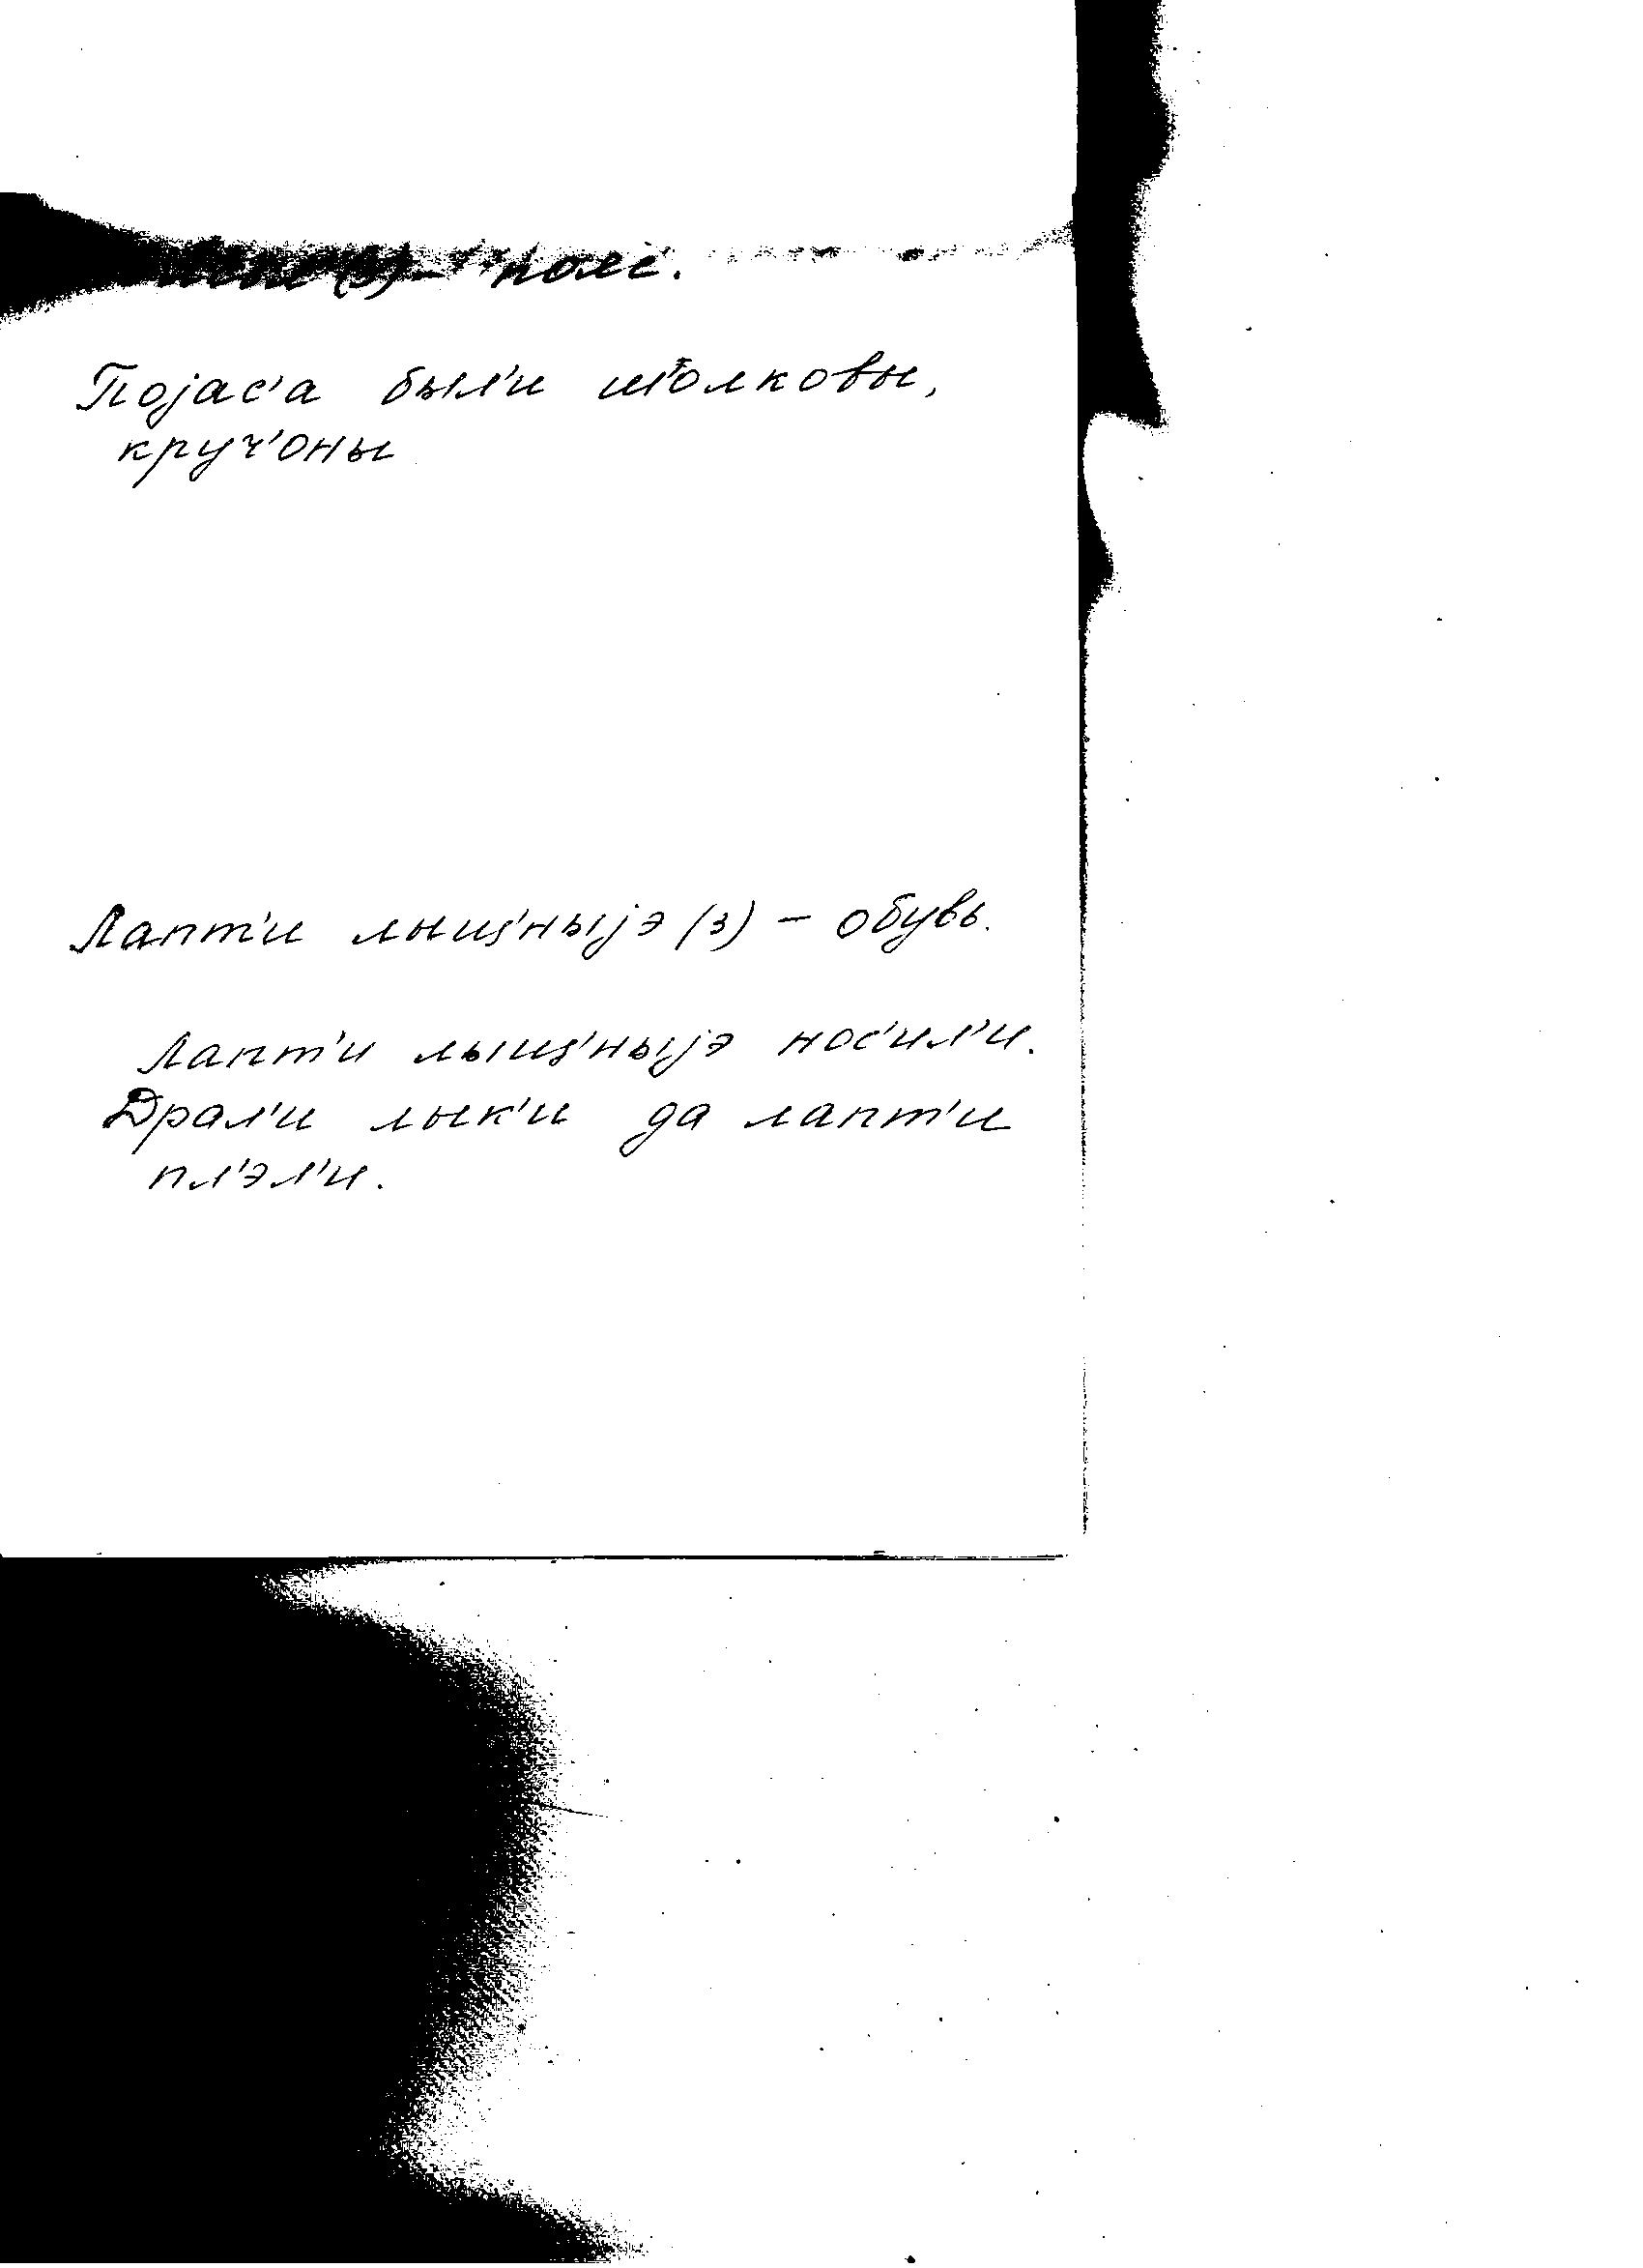 (з) – пояс.
Појас'а был'и шолковы,
круч'оны
Лапт'и лыщ'ныјэ (з) – обувь.
Лапт'и лыщ'ныјэ нос'ил'и.
Драл'и лык'и да лапт'и
пл'эл'и.